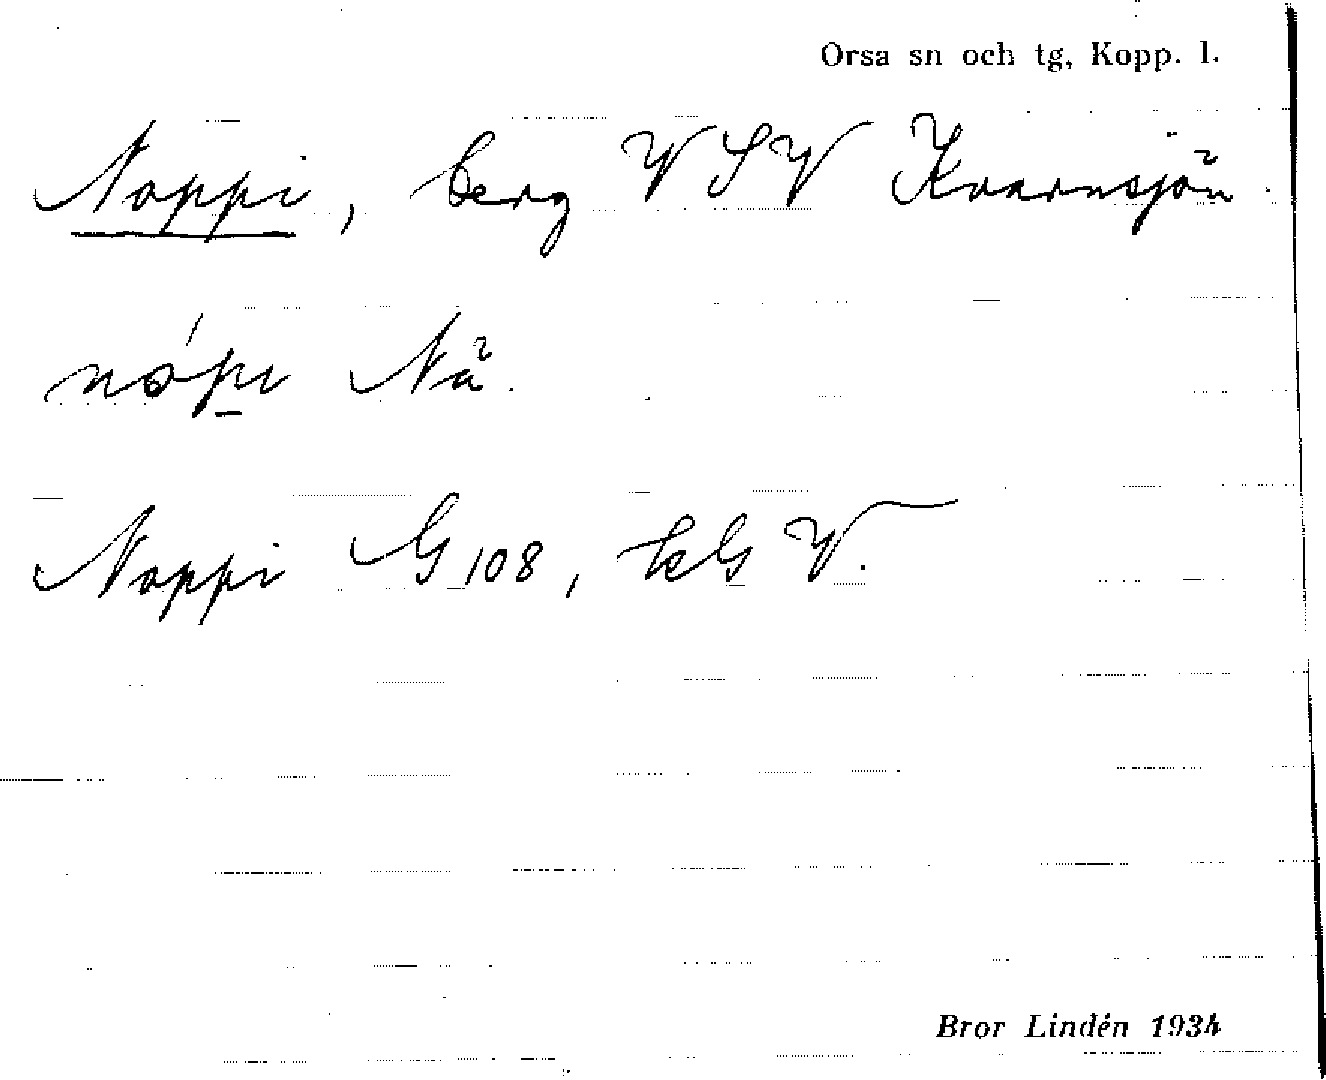 Orsa sn och tg, Kopp. l.
Noppi, berg VSV Kvarnsjön.
nópi Nä.
Noppi G 108, kG V.
Bror Lindén 1934